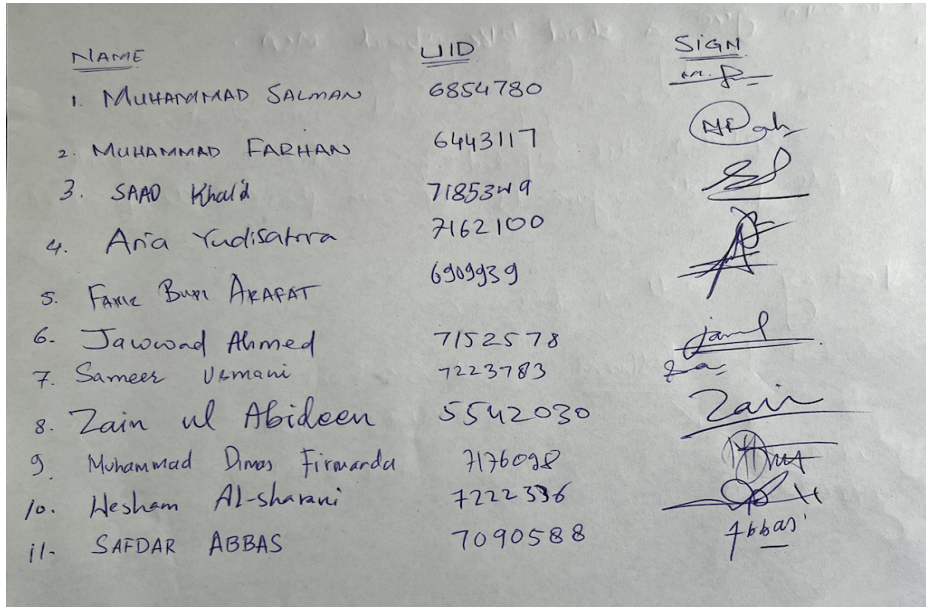 NAME UID SIGN
1. MUHAMMAD SALMAN 6854780
2. MUHAMMAD FARHAN 6443117
3. SAAD Khalid 7185349
4. Aria Yudisatira 7162100
5. ARAFAT 6909939
6- Jawwad Ahmed 7152578
7. Sameer Usmani 7223783
8. Zain ul Abideen 5542030 Zain
9 Muhammad Dimas Firmanda 7176098
10. Hesham Al-sharani 7222336
11- SAFDAR ABBAS 7090588 Abbas